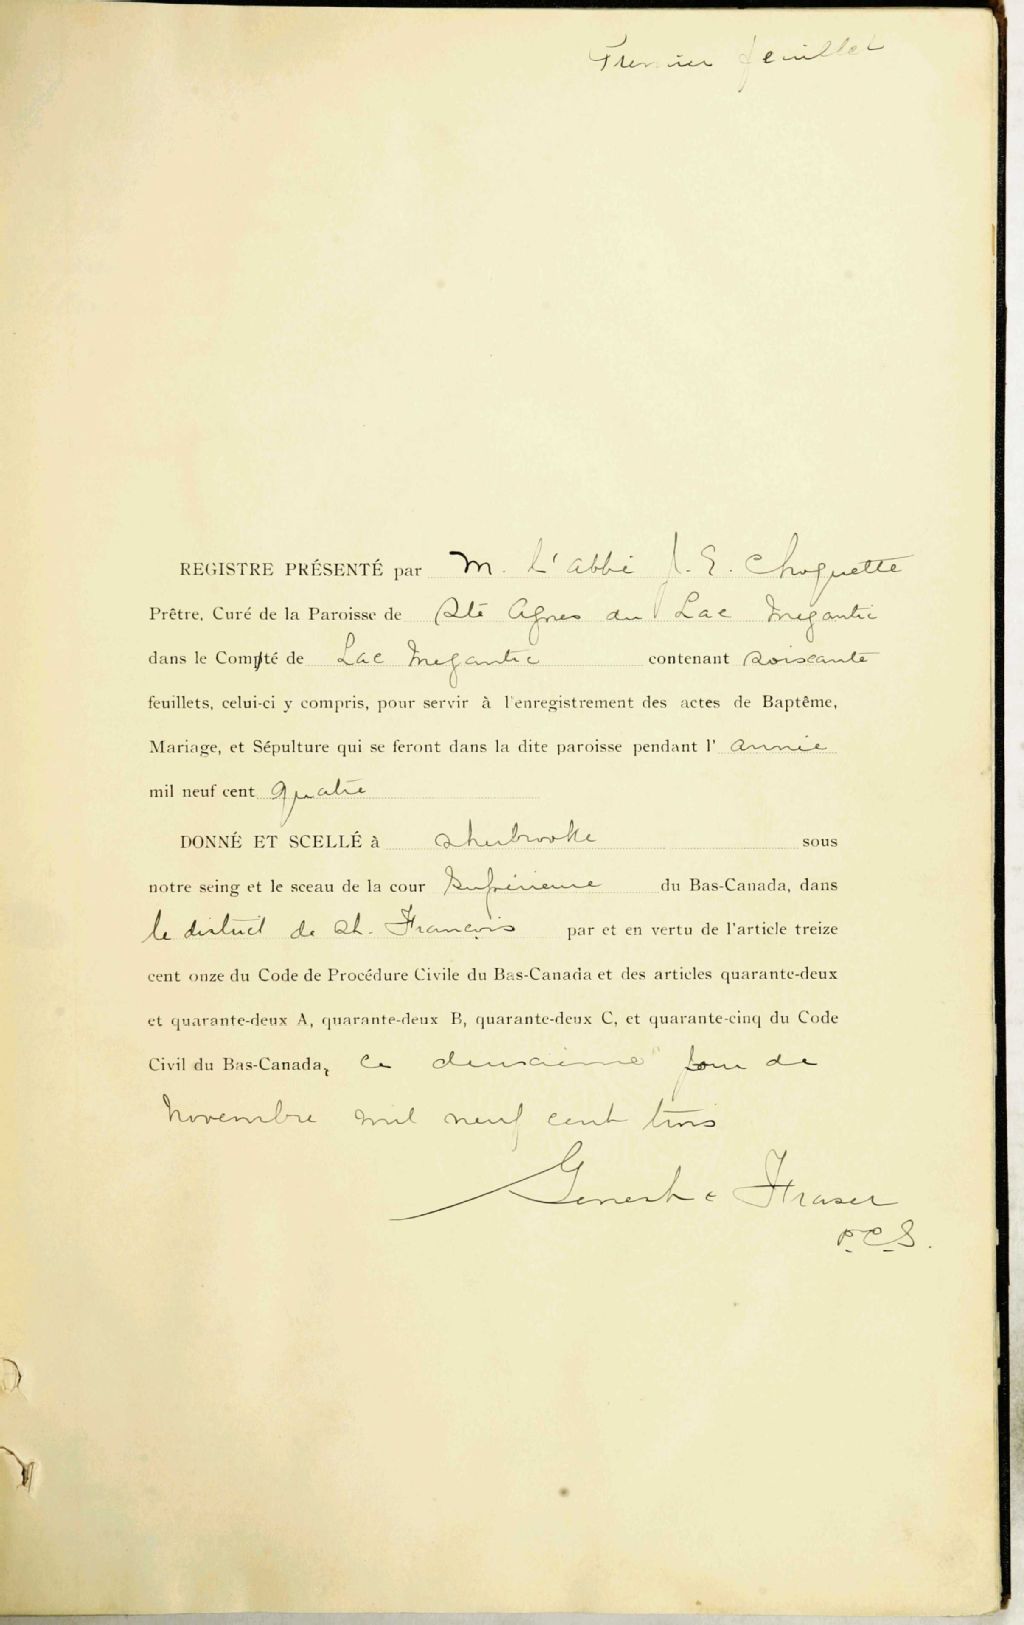 Premier feuillet
REGISTRE PRÉSENTÉ par M. L'abbé J. E. Choquette
Prêtre, Curé de la Paroisse de Ste Agnes du Lac Megantic
dans le Compté de Lac Megantic contenant soixante
feuillets, celui-ci y compris, pour servir à l'enregistrement des actes de Baptême,
Mariage, et Sépulture qui se feront dans la dite paroisse pendant l'année
mil neuf cent quatre
DONNÉ ET SCELLÉ à Sherbrooke sous
notre seing et le sceau de la cour Supérieure du Bas-Canada, dans
le district de St. François par et en vertu de l'article treize
cent onze du Code de Procédure Civile du Bas-Canada et des articles quarante-deux
et quarante-deux A, quarante-deux B, quarante-deux C, et quarante-cinq du Code
Civil du Bas-Canada, ce deuxième jour de
Novembre mil neuf cent trois
Genest & Fraser
P.C.S.